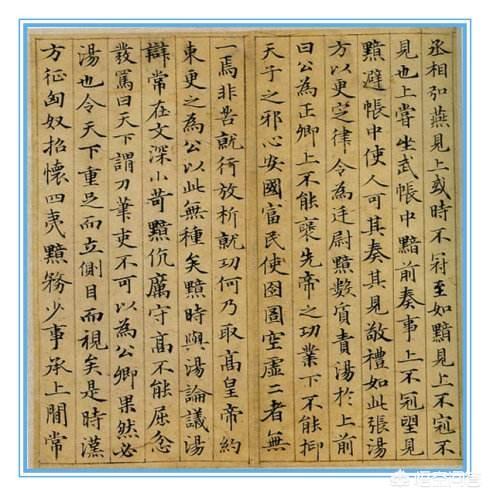 丞相弘燕見上或時不冠至如黯見上不冠不
見也上嘗坐武帳中黯前奏事上不冠望見
黯避帳中使人可其奏其見敬禮如此張湯
方以更定律令為廷尉黯數質責湯於上前
曰公為正卿上不能襃先帝之功業下不能抑
天子之邪心安國富民使囹圄空虛二者無
一焉非苦就行放析就功何乃取髙皇帝約
束更之為公以此無種矣黯時與湯論議湯
辯常在文深小苛黯伉厲守髙不能屈忿
發罵曰天下謂刀筆吏不可以為公卿果然必
湯也令天下重足而立側目而視矣是時漢
方征匈奴招懷四夷黯務少事承上閒常
悟空问答